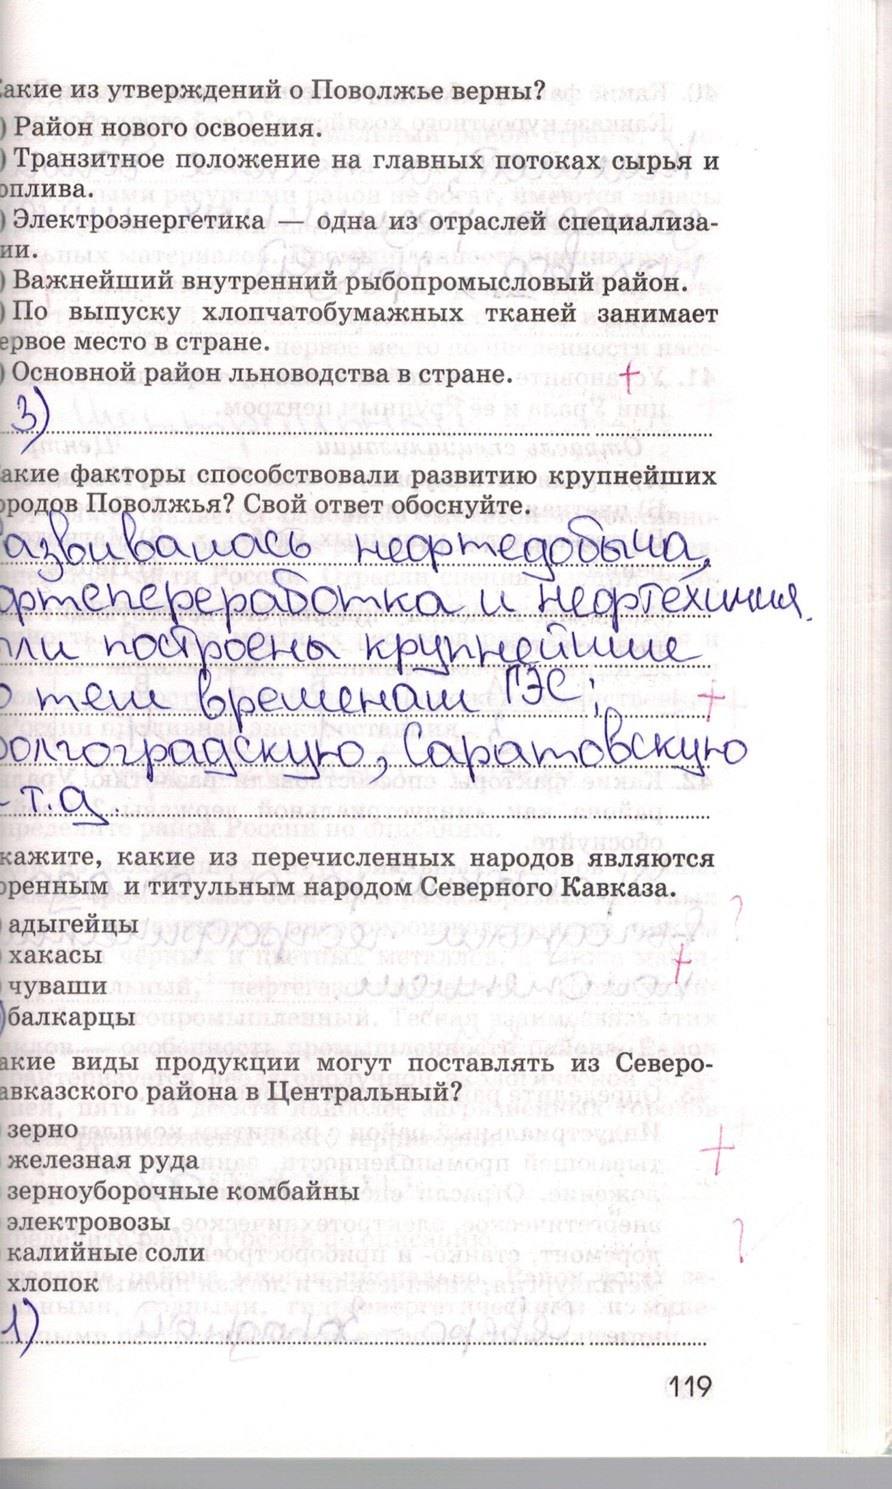 акие из утверждений о Поволжье верны?
) Район нового освоения.
) Транзитное положение на главных потоках сырья и
оплива.
) Электроэнергетика — одна из отраслей специализа-
ии.
) Важнейший внутренний рыбопромысловый район.
) По выпуску хлопчатобумажных тканей занимает
ервое место в стране.
) Основной район льноводства в стране. +
3)
акие факторы способствовали развитию крупнейших
ородов Поволжья? Свой ответ обоснуйте.
азвивалась нефтедобыча,
фтепереработка и нефтехимия.
ли построены крупнейшие
о тем временам ГЭС: +
олгоградскую, Саратовскую
т.д.
кажите, какие из перечисленных народов являются
оренным и титульным народом Северного Кавказа.
) адыгейцы ?
) хакасы +
) чуваши
) балкарцы
акие виды продукции могут поставлять из Северо-
авказского района в Центральный?
зерно +
железная руда
зерноуборочные комбайны
электровозы ?
калийные соли
хлопок
1)
119